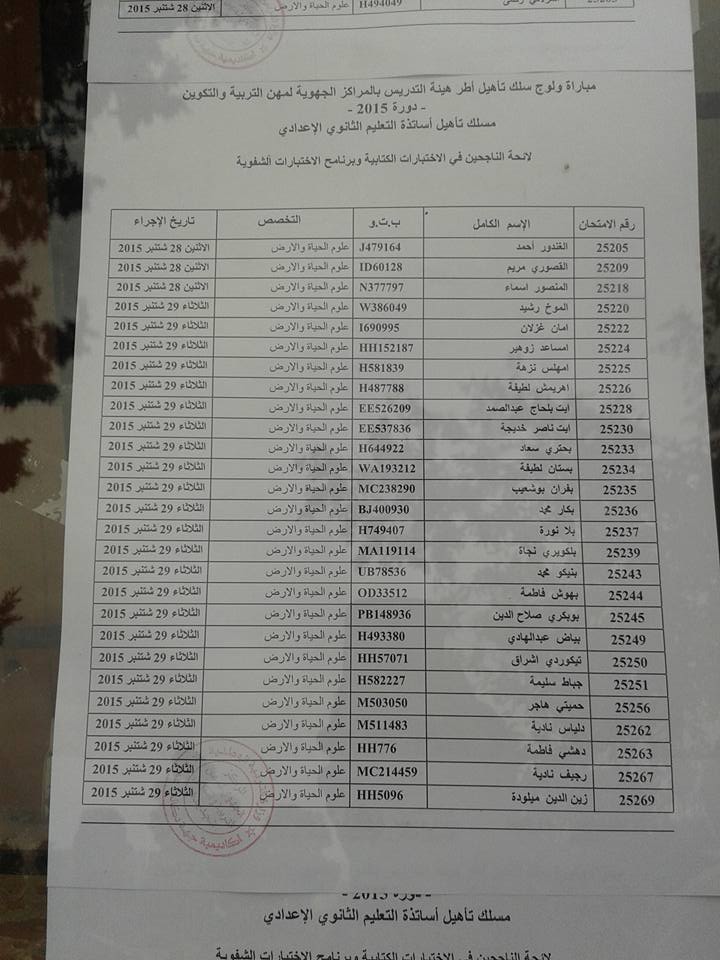 H494049 علوم الحياة والارض الاثنين 28 شتنبر 2015
مباراة ولوج سلك تأهيل أطر هيئة التدريس بالمراكز الجهوية لمهن التربية والتكوين
- دورة 2015 -
مسلك تأهيل أساتذة التعليم الثانوي الإعدادي
لائحة الناجحين في الاختبارات الكتابية وبرنامج الاختبارات الشفوية
رقم الامتحان الإسم الكامل ب.ت.و التخصص تاريخ الإجراء
25205 الغندور أحمد J479164 علوم الحياة والارض الاثنين 28 شتنبر 2015
25209 القصوري مريم ID60128 علوم الحياة والارض الاثنين 28 شتنبر 2015
25218 المنصور اسماء N377797 علوم الحياة والارض الاثنين 28 شتنبر 2015
25220 الموخ رشيد W386049 علوم الحياة والارض الثلاثاء 29 شتنبر 2015
25222 امان غزلان I690995 علوم الحياة والارض الثلاثاء 29 شتنبر 2015
25224 امساعد زوهير HH152187 علوم الحياة والارض الثلاثاء 29 شتنبر 2015
25225 امهلس نزهة H581839 علوم الحياة والارض الثلاثاء 29 شتنبر 2015
25226 اهريمش لطيفة H487788 علوم الحياة والارض الثلاثاء 29 شتنبر 2015
25228 ايت بلحاج عبدالصمد EE526209 علوم الحياة والارض الثلاثاء 29 شتنبر 2015
25230 ايت ناصر خديجة EE537836 علوم الحياة والارض الثلاثاء 29 شتنبر 2015
25233 بحتري سعاد H644922 علوم الحياة والارض الثلاثاء 29 شتنبر 2015
25234 بستان لطيفة WA193212 علوم الحياة والارض الثلاثاء 29 شتنبر 2015
25235 بفران بوشعيب MC238290 علوم الحياة والارض الثلاثاء 29 شتنبر 2015
25236 بكار محمد BJ400930 علوم الحياة والارض الثلاثاء 29 شتنبر 2015
25237 بلا نورة H749407 علوم الحياة والارض الثلاثاء 29 شتنبر 2015
25239 بلكويري نجاة MA119114 علوم الحياة والارض الثلاثاء 29 شتنبر 2015
25243 بنيكو محمد UB78536 علوم الحياة والارض الثلاثاء 29 شتنبر 2015
25244 بهوش فاطمة OD33512 علوم الحياة والارض الثلاثاء 29 شتنبر 2015
25245 بوبكري صلاح الدين PB148936 علوم الحياة والارض الثلاثاء 29 شتنبر 2015
25249 بياض عبدالهادي H493380 علوم الحياة والارض الثلاثاء 29 شتنبر 2015
25250 تيكوردي اشراق HH57071 علوم الحياة والارض الثلاثاء 29 شتنبر 2015
25251 جباط سليمة H582227 علوم الحياة والارض الثلاثاء 29 شتنبر 2015
25256 حميتي هاجر M503050 علوم الحياة والارض الثلاثاء 29 شتنبر 2015
25262 دلياس نادية M511483 علوم الحياة والارض الثلاثاء 29 شتنبر 2015
25263 دهشي فاطمة HH776 علوم الحياة والارض الثلاثاء 29 شتنبر 2015
25267 رجيف نادية MC214459 علوم الحياة والارض الثلاثاء 29 شتنبر 2015
25269 زين الدين ميلودة HH5096 علوم الحياة والارض الثلاثاء 29 شتنبر 2015
- دورة 2015 -
مسلك تأهيل أساتذة التعليم الثانوي الإعدادي
لائحة الناجحين في الاختبارات الكتابية وبرنامج الاختبارات الشفوية